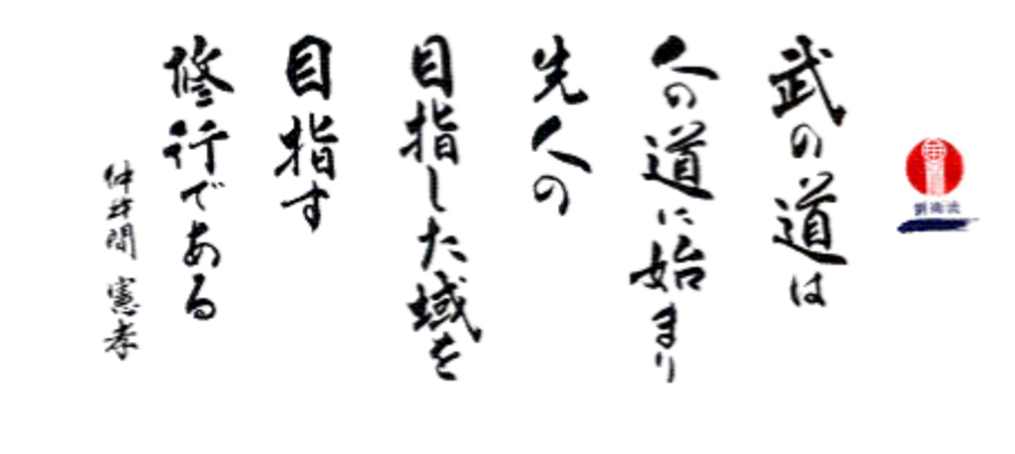 劉衛流
武の道は
人の道に始まり
先人の
目指した域を
目指す
修行である
仲井間 憲孝